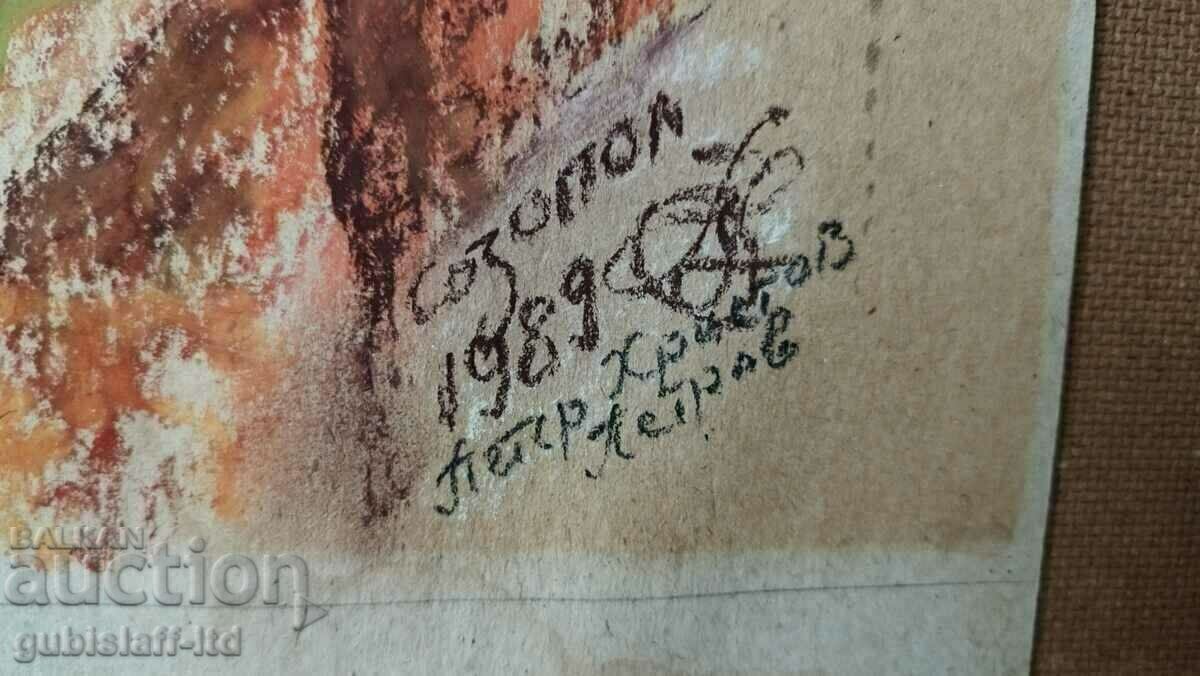 Созопол
1989
Петр Христов
Петров
BALKAN
auction
gubislaff-ltd